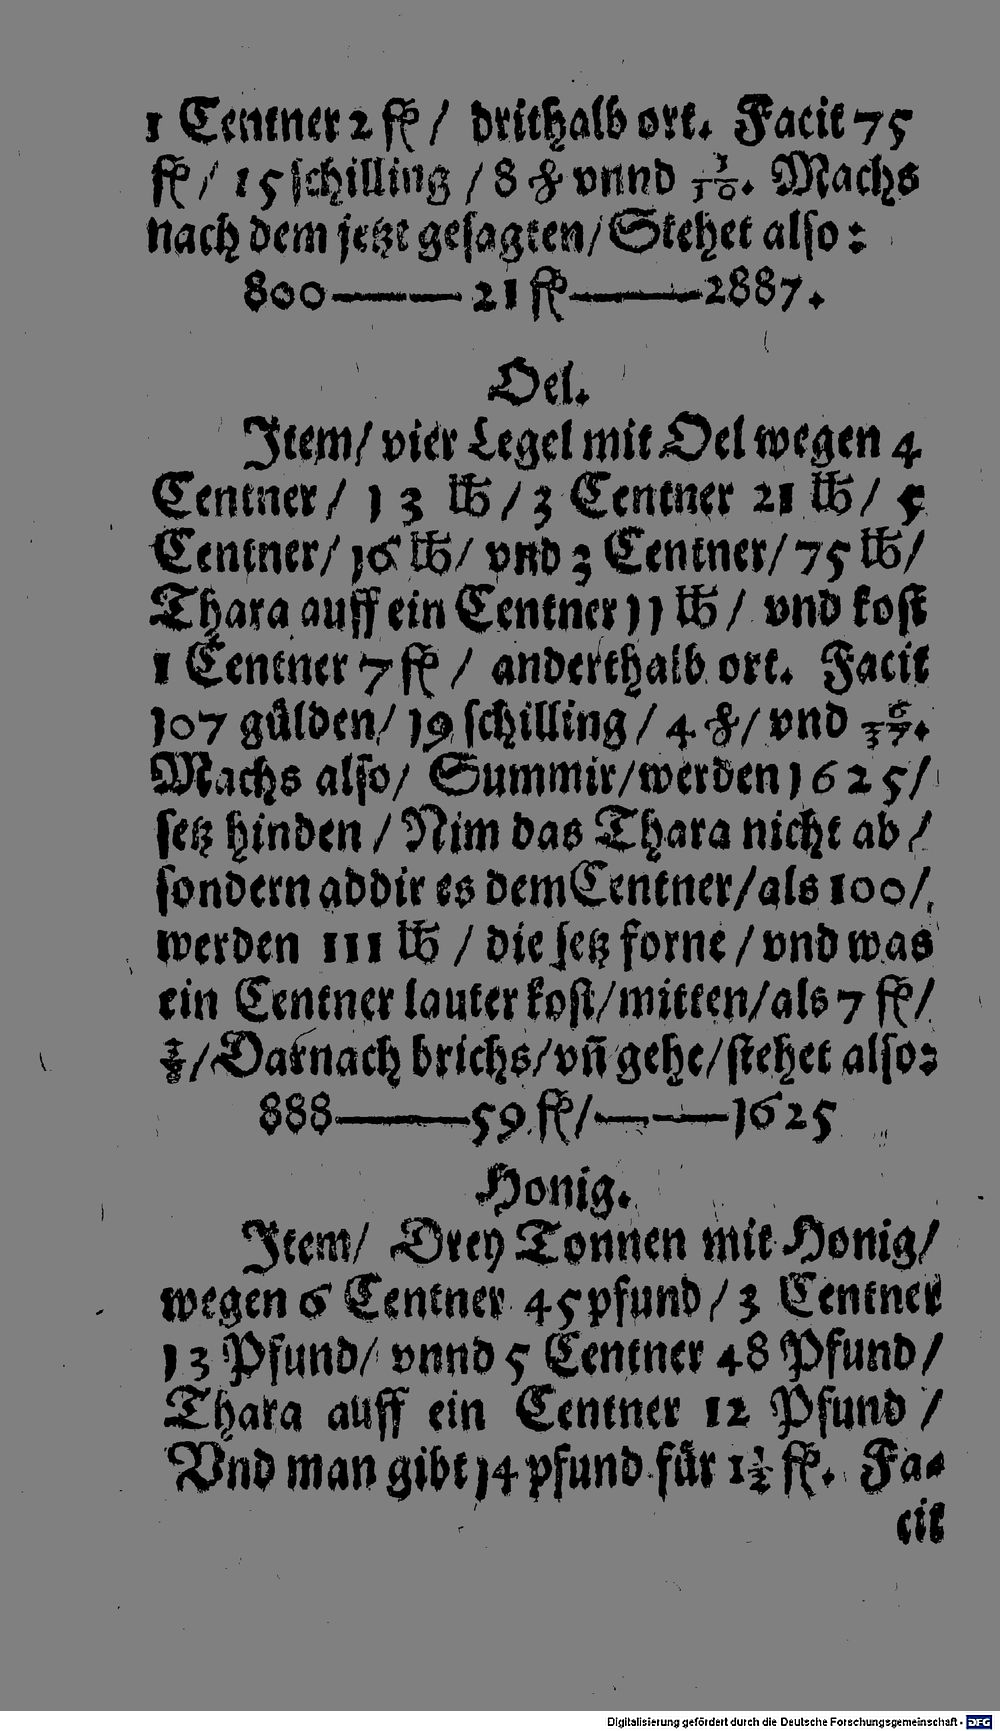 1 Centner 2 fl/ drithalb ort. Facit 75
fl/ 15 schilling /8 ₰ vnnd 3/10. Machs
nach dem jetzt gesagten/Stehet also:
800——21 fl——2887.
Oel.
Item/ vier Legel mit Oel wegen 4
Centner/ 13 ℔/3 Centner 21 ℔/ 5
Centner/16 ℔/ vnd 3 Centner/75 ℔/
Thara auff ein Centner 11 ℔/ vnd kost
1 Centner 7 fl/ anderthalb ort. Facit
107 gůlden/ 19 schilling/ 4 ₰/ vnd 6/37.
Machs also/ Summir/werden 1625/
setz hinden/Nim das Thara nicht ab/
sondern addir es dem Centner/als 100/
werden 111 ℔/die setz forne/vnd was
ein Centner lauter kost/mitten/als 7 fl/
3/8/Darnach brichs/vñ gehe/stehet also:
888——59 fl/——1625
Honig.
Item/ Drey Tonnen mit Honig/
wegen 6 Centner 45 pfund/3 Centner
13 Pfund/ vnnd 5 Centner 48 Pfund/
Thara auff ein Centner 12 Pfund/
Vnd man gibt 14 pfund fůr 1½ fl. Fa-
cit
Digitalisierung gefördert durch die Deutsche Forschungsgemeinschaft - DFG